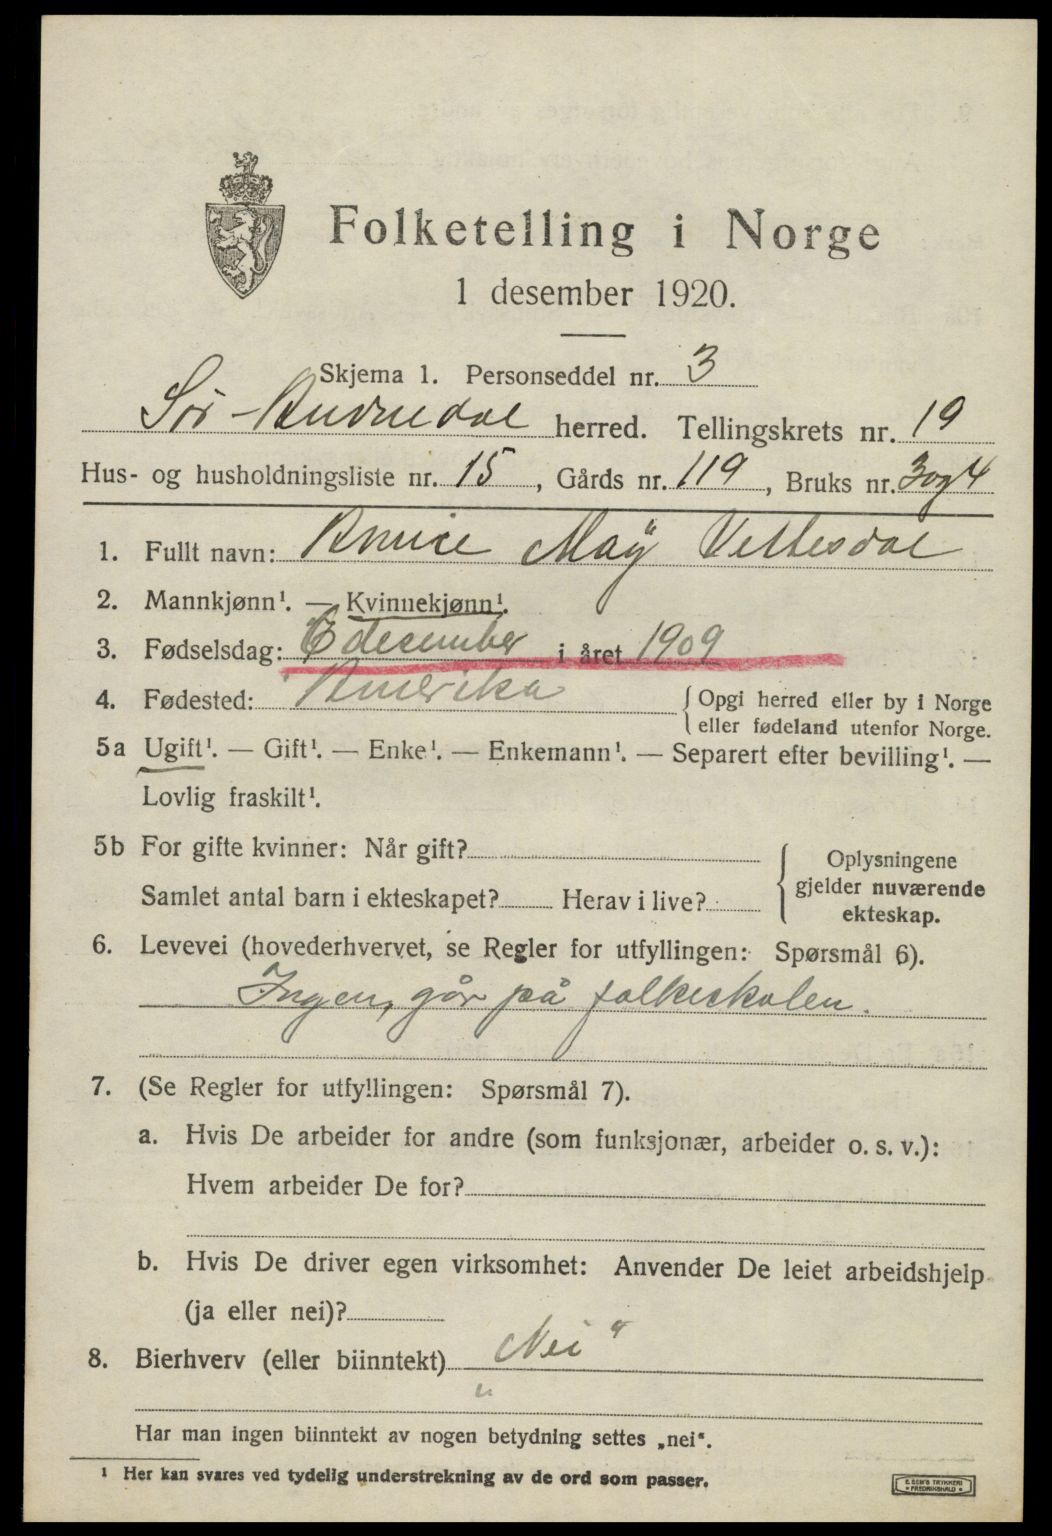 Folketelling i Norge
1 desember 1920.
Skjema 1. Personseddel nr. 3
Sör-Audnedal herred. Tellingskrets nr. 19
Hus- og husholdningsliste nr. 15, Gårds nr. 119, Bruks nr. 3 og 4
1. Fullt navn: Annie Maÿ Vettesdal
2. Mannkjønn¹. — Kvinnekjønn¹.
3. Fødselsdag: 6 desember i året 1909
4. Fødested: Amerika { Opgi herred eller by i Norge
eller fødeland utenfor Norge.
5a Ugift¹. — Gift¹. — Enke¹. — Enkemann¹. — Separert efter bevilling¹. —
Lovlig fraskilt¹.
5b For gifte kvinner: Når gift?
Samlet antal barn i ekteskapet? Herav i live?
Oplysningene
gjelder nuværende
ekteskap.
6. Levevei (hovederhvervet, se Regler for utfyllingen: Spørsmål 6).
Ingen, går på folkeskolen.
7. (Se Regler for utfyllingen: Spørsmål 7).
a. Hvis De arbeider for andre (som funksjonær, arbeider o. s. v.):
Hvem arbeider De for?
b. Hvis De driver egen virksomhet: Anvender De leiet arbeidshjelp
(ja eller nei)?
8. Bierhverv (eller biinntekt) „Nei“
Har man ingen biinntekt av nogen betydning settes „nei“.
¹ Her kan svares ved tydelig understrekning av de ord som passer.
E. SEM'S TRYKKERI
FREDRIKSHALD